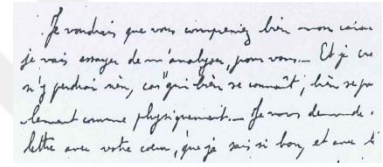 Je voudrais que vous compreniez bien mon
je vais essayer de m'analyser, pour vous... Et je
n'y perdrai rien, car "qui bien se connaît, bien se
comme physiquement... Je vous demande
lettre avec votre cœur, que je sais si bon, et avec